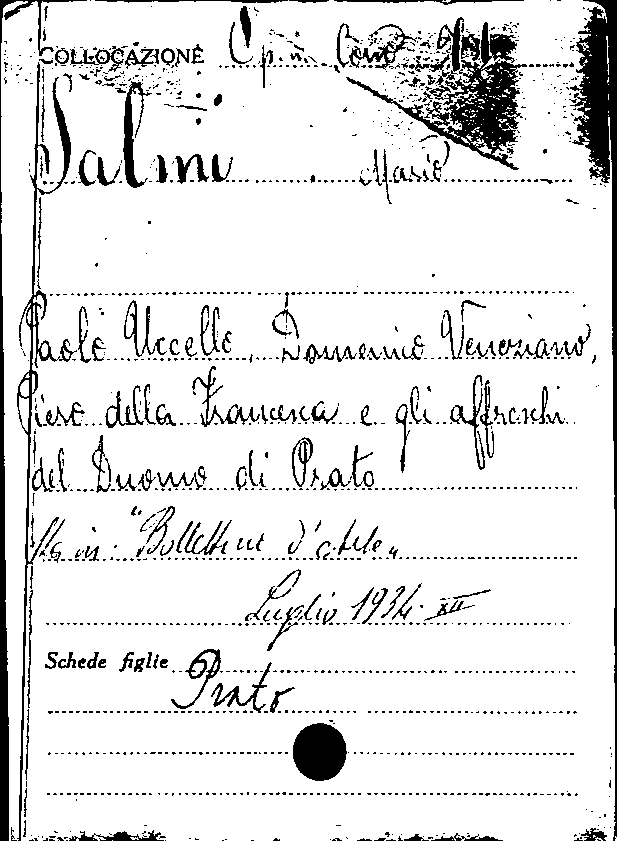 COLLOCAZIONE Op. in
Salmi Mario
Paolo Uccello, Domenico Veneziano,
Piero della Francesca e gli affreschi
del Duomo di Prato
Sta in: "Bollettino d'arte„
Luglio 1934 XII
Schede figlie
Prato